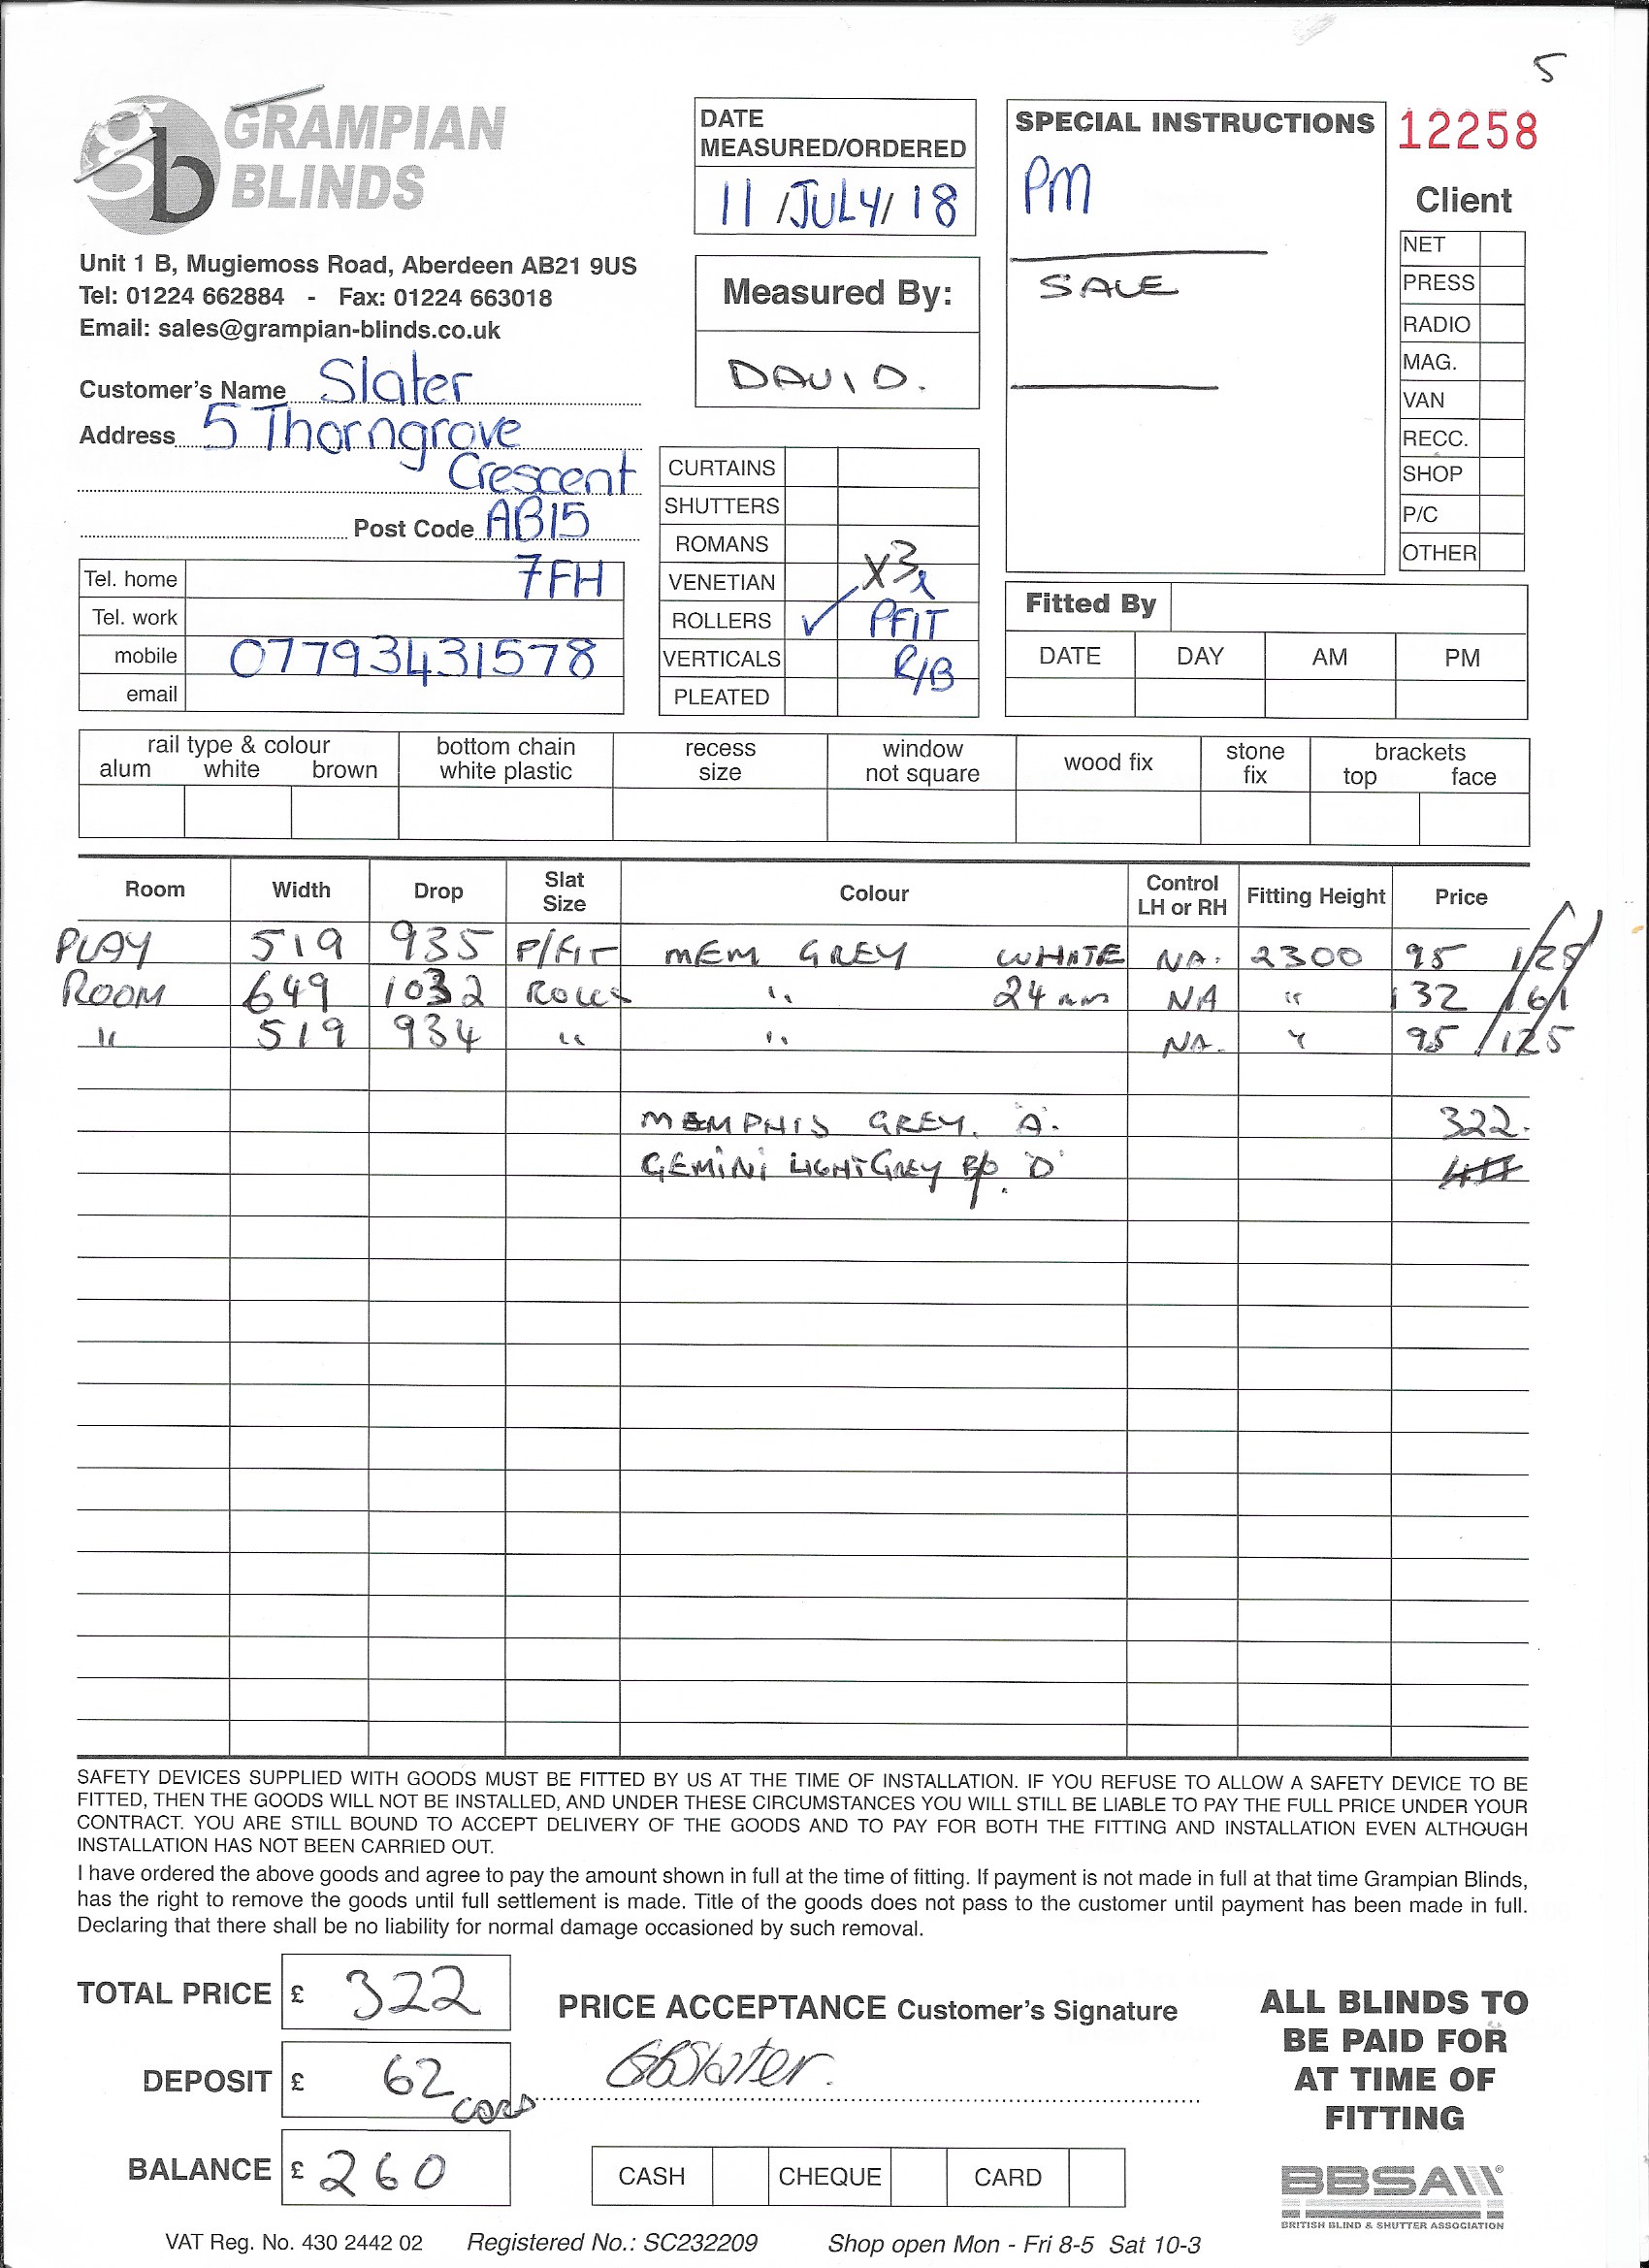 5
GRAMPIAN
BLINDS
gb
Unit 1 B, Mugiemoss Road, Aberdeen AB21 9US
Tel: 01224 662884 - Fax: 01224 663018
Email: sales@grampian-blinds.co.uk
Customer's Name Slater
Address 5 Thorngrove
Crescent
Post Code AB15
7FH
Tel. home
Tel. work
mobile 07793431578
email
DATE
MEASURED/ORDERED
11 /JULY/ 18
Measured By:
DAVID.
CURTAINS
SHUTTERS
ROMANS
VENETIAN x3
ROLLERS ✓ PFIT
VERTICALS R/B
PLEATED
SPECIAL INSTRUCTIONS
PM
SALE
12258
Client
NET
PRESS
RADIO
MAG.
VAN
RECC.
SHOP
P/C
OTHER
Fitted By
DATE DAY AM PM
rail type & colour
alum white brown
bottom chain
white plastic
recess
size
window
not square
wood fix
stone
fix
brackets
top face
Room Width Drop Slat Size Colour Control LH or RH Fitting Height Price
PLAY 519 935 P/FIT MEM GREY WHITE NA. 2300 95 125
ROOM 649 1032 ROLL " 24mm NA " 132 161
" 519 934 " " NA. " 95 /125
MEMPHIS GREY. 'A'. 322.
GEMINI LIGHT GREY B/O 'D'
SAFETY DEVICES SUPPLIED WITH GOODS MUST BE FITTED BY US AT THE TIME OF INSTALLATION. IF YOU REFUSE TO ALLOW A SAFETY DEVICE TO BE
FITTED, THEN THE GOODS WILL NOT BE INSTALLED, AND UNDER THESE CIRCUMSTANCES YOU WILL STILL BE LIABLE TO PAY THE FULL PRICE UNDER YOUR
CONTRACT. YOU ARE STILL BOUND TO ACCEPT DELIVERY OF THE GOODS AND TO PAY FOR BOTH THE FITTING AND INSTALLATION EVEN ALTHOUGH
INSTALLATION HAS NOT BEEN CARRIED OUT.
I have ordered the above goods and agree to pay the amount shown in full at the time of fitting. If payment is not made in full at that time Grampian Blinds,
has the right to remove the goods until full settlement is made. Title of the goods does not pass to the customer until payment has been made in full.
Declaring that there shall be no liability for normal damage occasioned by such removal.
TOTAL PRICE £ 322
DEPOSIT £ 62 CARD
BALANCE £ 260
PRICE ACCEPTANCE Customer's Signature
Slater.
CASH CHEQUE CARD
ALL BLINDS TO
BE PAID FOR
AT TIME OF
FITTING
BBSA ®
BRITISH BLIND & SHUTTER ASSOCIATION
VAT Reg. No. 430 2442 02 Registered No.: SC232209 Shop open Mon - Fri 8-5 Sat 10-3